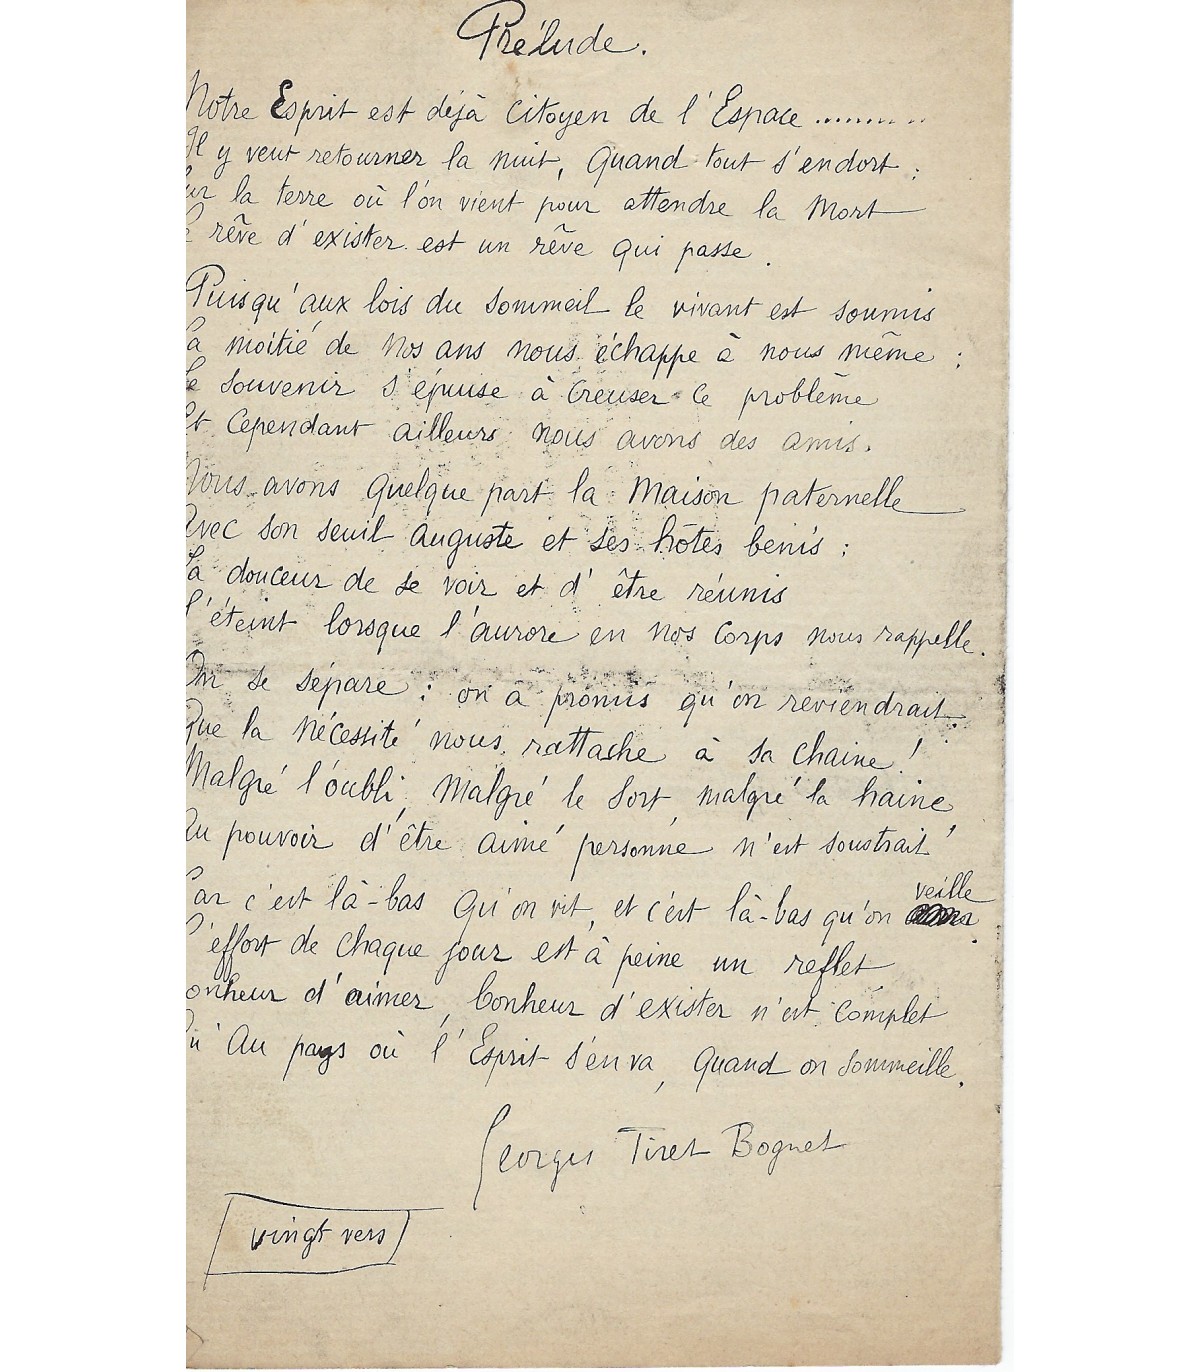 Prélude.
Notre Esprit est déjà citoyen de l'Espace ..........
Il y veut retourner la nuit, quand tout s'endort :
Sur la terre où l'on vient pour attendre la Mort
Le rêve d'exister est un rêve qui passe.
Puisqu'aux lois du sommeil le vivant est soumis
La moitié de nos ans nous échappe à nous même :
Le souvenir s'épuise à creuser ce problème
Et cependant ailleurs nous avons des amis.
Nous avons quelque part la Maison paternelle
Avec son seuil auguste et ses hôtes bénis :
La douceur de se voir et d'être réunis
S'éteint lorsque l'aurore en nos corps nous rappelle.
On se sépare : on a promis qu'on reviendrait.
Que la Nécessité nous rattache à sa chaine !
Malgré l'oubli, Malgré le sort, malgré la haine,
Au pouvoir d'être aimé personne n'est soustrait
Car c'est là-bas qu'on vit, et c'est là-bas qu'on veille.
L'effort de chaque jour est à peine un reflet
Bonheur d'aimer, bonheur d'exister n'est complet
Qu'Au pays où l'Esprit s'en va, quand on sommeille.
Georges Tiret Bognet
vingt vers